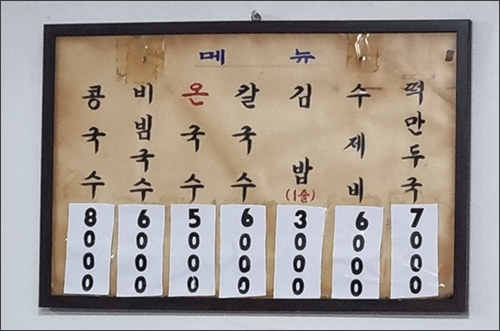 메뉴
콩국수
8000
비빔국수
6000
온국수
5000
칼국수
6000
김밥
(1줄)
3000
수제비
6000
떡만두국
7000